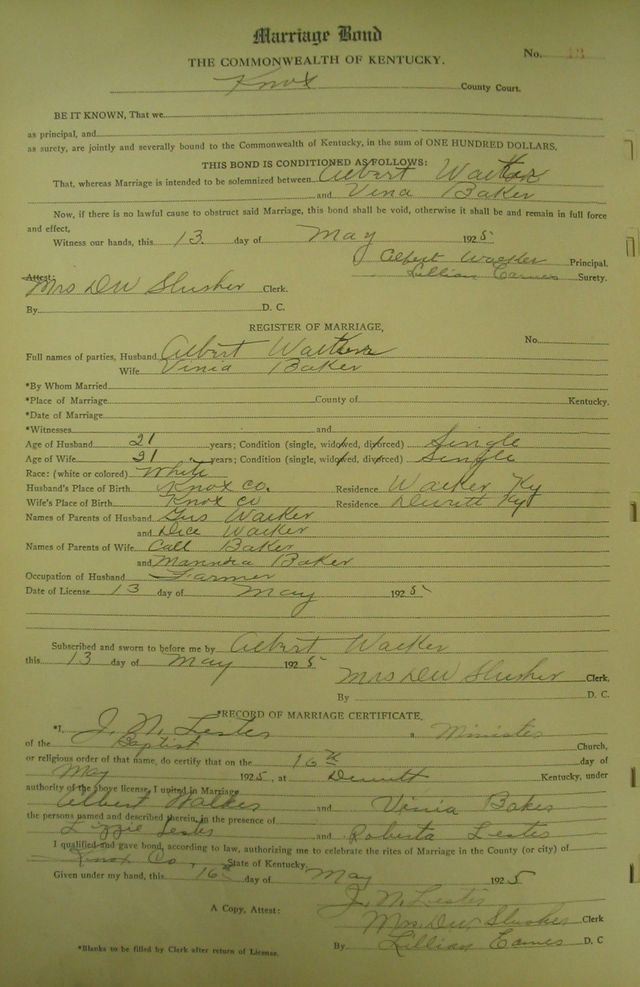 Marriage Bond
THE COMMONWEALTH OF KENTUCKY. No.
Knox County Court.
BE IT KNOWN, That we
as principal, and
as surety, are jointly and severally bound to the Commonwealth of Kentucky, in the sum of ONE HUNDRED DOLLARS.
THIS BOND IS CONDITIONED AS FOLLOWS:
That, whereas Marriage is intended to be solemnized between Albert Walker
and Vina Baker
Now, if there is no lawful cause to obstruct said Marriage, this bond shall be void, otherwise it shall be and remain in full force
and effect,
Witness our hands, this 13. day of May 1925
Albert Walker Principal.
Lillian Eames Surety.
Attest:
Mrs DW Slusher Clerk.
By D. C.
REGISTER OF MARRIAGE,
No.
Full names of parties, Husband Albert Walker
Wife Vinia Baker
*By Whom Married
*Place of Marriage County of Kentucky.
*Date of Marriage
*Witnesses and
Age of Husband 21 years; Condition (single, widowed, divorced) Single
Age of Wife 21 years; Condition (single, widowed, divorced) Single
Race: (white or colored) White
Husband's Place of Birth Knox Co. Residence Walker Ky
Wife's Place of Birth Knox co Residence Dewitt Ky
Names of Parents of Husband Gus Walker
and Dice Walker
Names of Parents of Wife Call Baker
and Manndia Baker
Occupation of Husband Farmer
Date of License 13 day of May 1925
Subscribed and sworn to before me by Albert Walker
this 13 day of May 1925
Mrs DW Slusher Clerk,
By D. C.
*RECORD OF MARRIAGE CERTIFICATE,
*I, J. N. Lester a Minister
of the Baptist Church,
or religious order of that name, do certify that on the 16th day of
May 1925, at Dewitt Kentucky, under
authority of the above license, I united in Marriage
Albert Walker and Vinia Baker
the persons named and described therein, in the presence of
Lizzie Lester and Roberta Lester
I qualified and gave bond, according to law, authorizing me to celebrate the rites of Marriage in the County (or city) of
Knox Co, State of Kentucky,
Given under my hand, this 16th day of May 1925
J. N. Lester
A Copy, Attest: Mrs. DW Slusher Clerk
*Blanks to be filled by Clerk after return of License. By Lillian Eames D. C